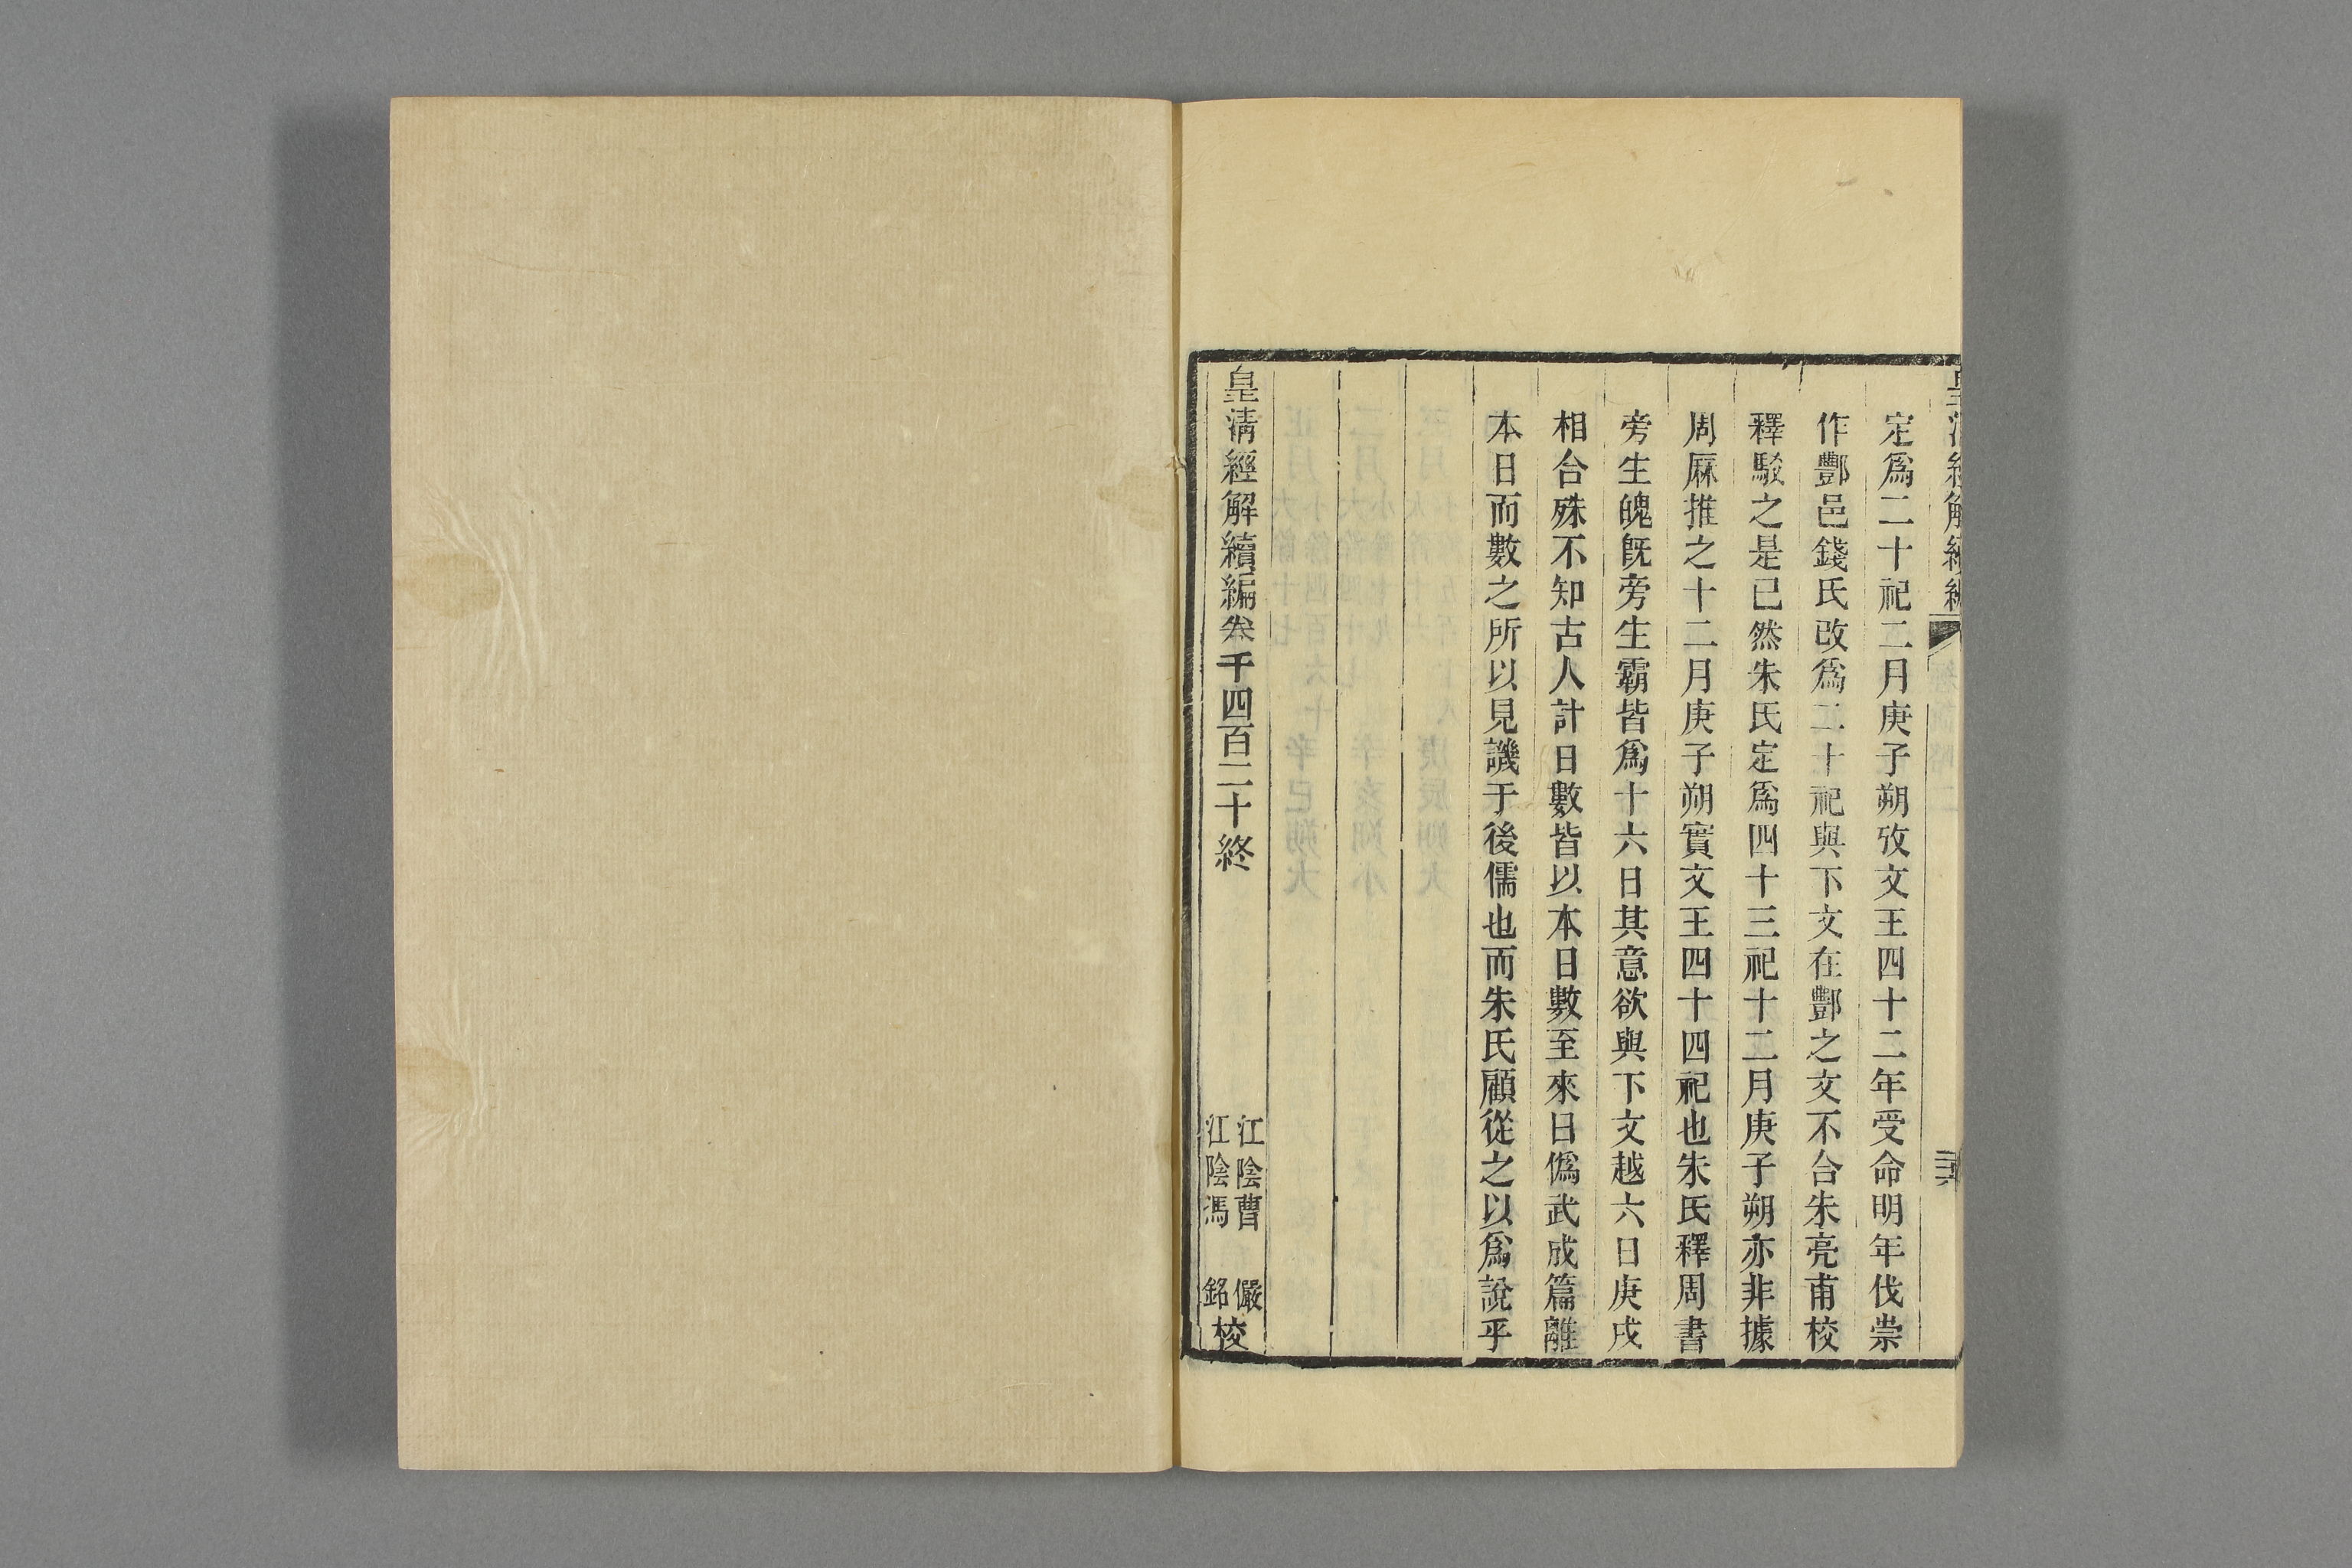 皇清經解續編
定爲二十祀二月庚子朔攷文王四十二年受命明年伐崇
作酆邑錢氏改爲二十祀與下文在酆之文不合朱亮甫校
釋駁之是已然朱氏定爲四十三祀十二月庚子朔亦非據
周厤推之十二月庚子朔實文王四十四祀也朱氏釋周書
旁生魄旣旁生霸皆爲十六日其意欲與下文越六日庚戌
相合殊不知古人計日數皆以本日數至來日僞武成篇離
本日而數之所以見譏于後儒也而朱氏顧從之以爲說乎
皇清經解續編卷千四百二十終
江陰曹儼
江陰馮銘
校